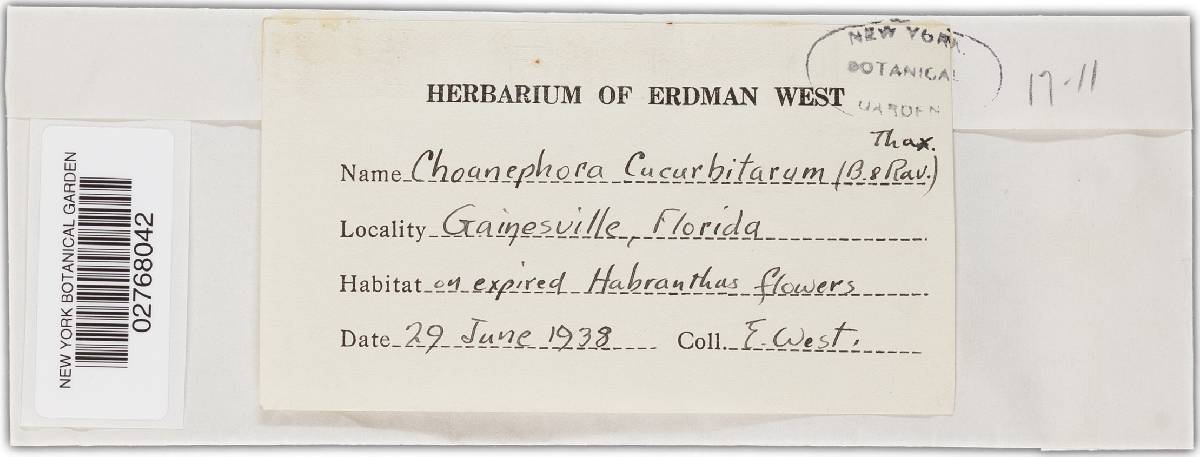 NEW YORK
BOTANICAL
GARDEN
17-11
HERBARIUM OF ERDMAN WEST
Thax.
Name Choanephora Cucurbitarum (B. & Rav.)
Locality Gainesville, Florida
Habitat on expired Habranthus flowers
Date 29 June 1938 Coll. E. West.
NEW YORK BOTANICAL GARDEN
02768042